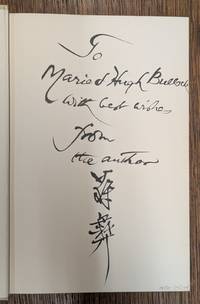 To
Marie & Hugh Bullock
With best wishes
from
the author
蔣
彝